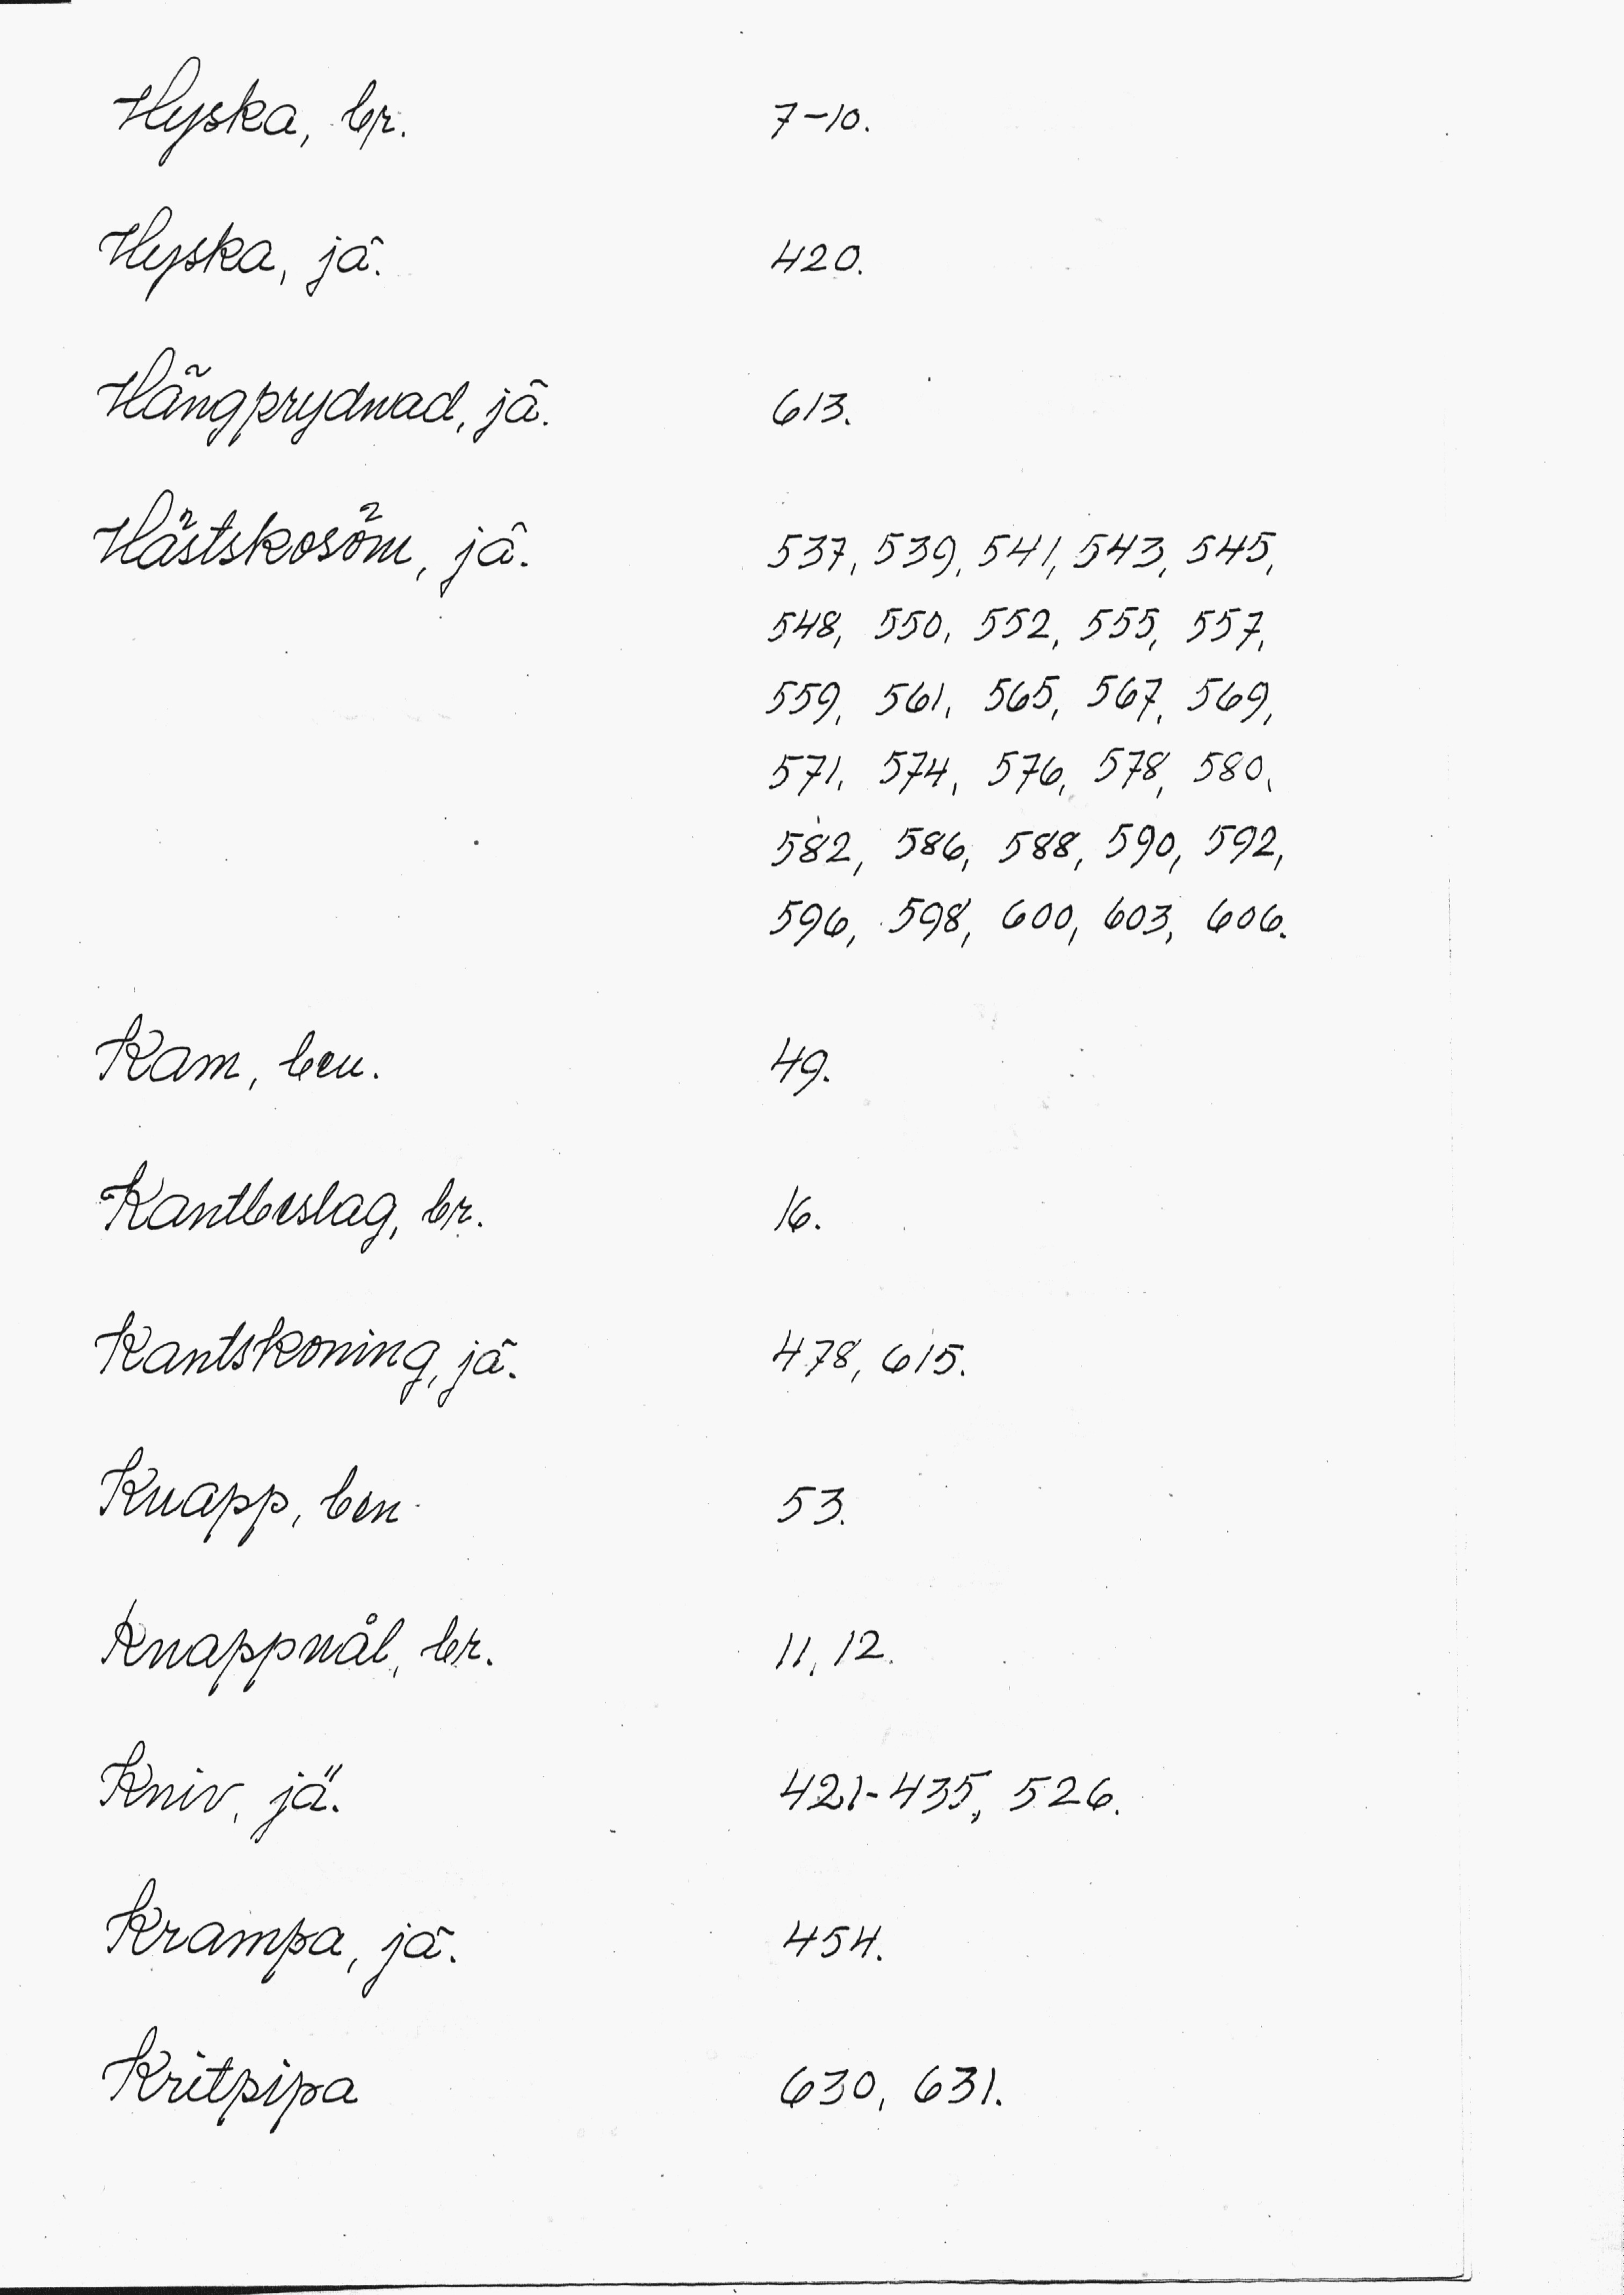 Hyska, br. 7-10.
Hyska, jä. 420.
Hängprydnad, jä. 613.
Hästskosöm, jä. 537, 539, 541, 543, 545,
548, 550, 552, 555, 557,
559, 561, 565, 567, 569,
571, 574, 576, 578, 580,
582, 586, 588, 590, 592,
596, 598, 600, 603, 606.
Kam, ben. 49.
Kantbeslag, br. 16.
Kantskoning, jä. 478, 615.
Knapp, ben. 53.
Knappnål, br. 11, 12.
Kniv, jä. 421-435, 526.
Krampa, jä. 454.
Kritpipa 630, 631.